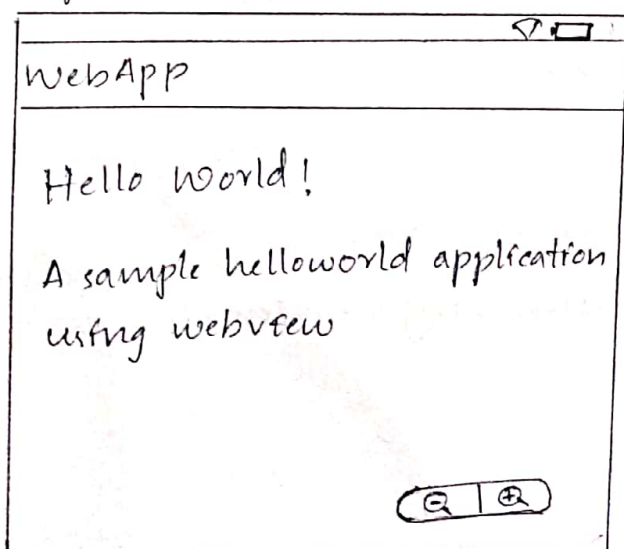 WebApp
Hello World!
A sample helloworld application
using webview